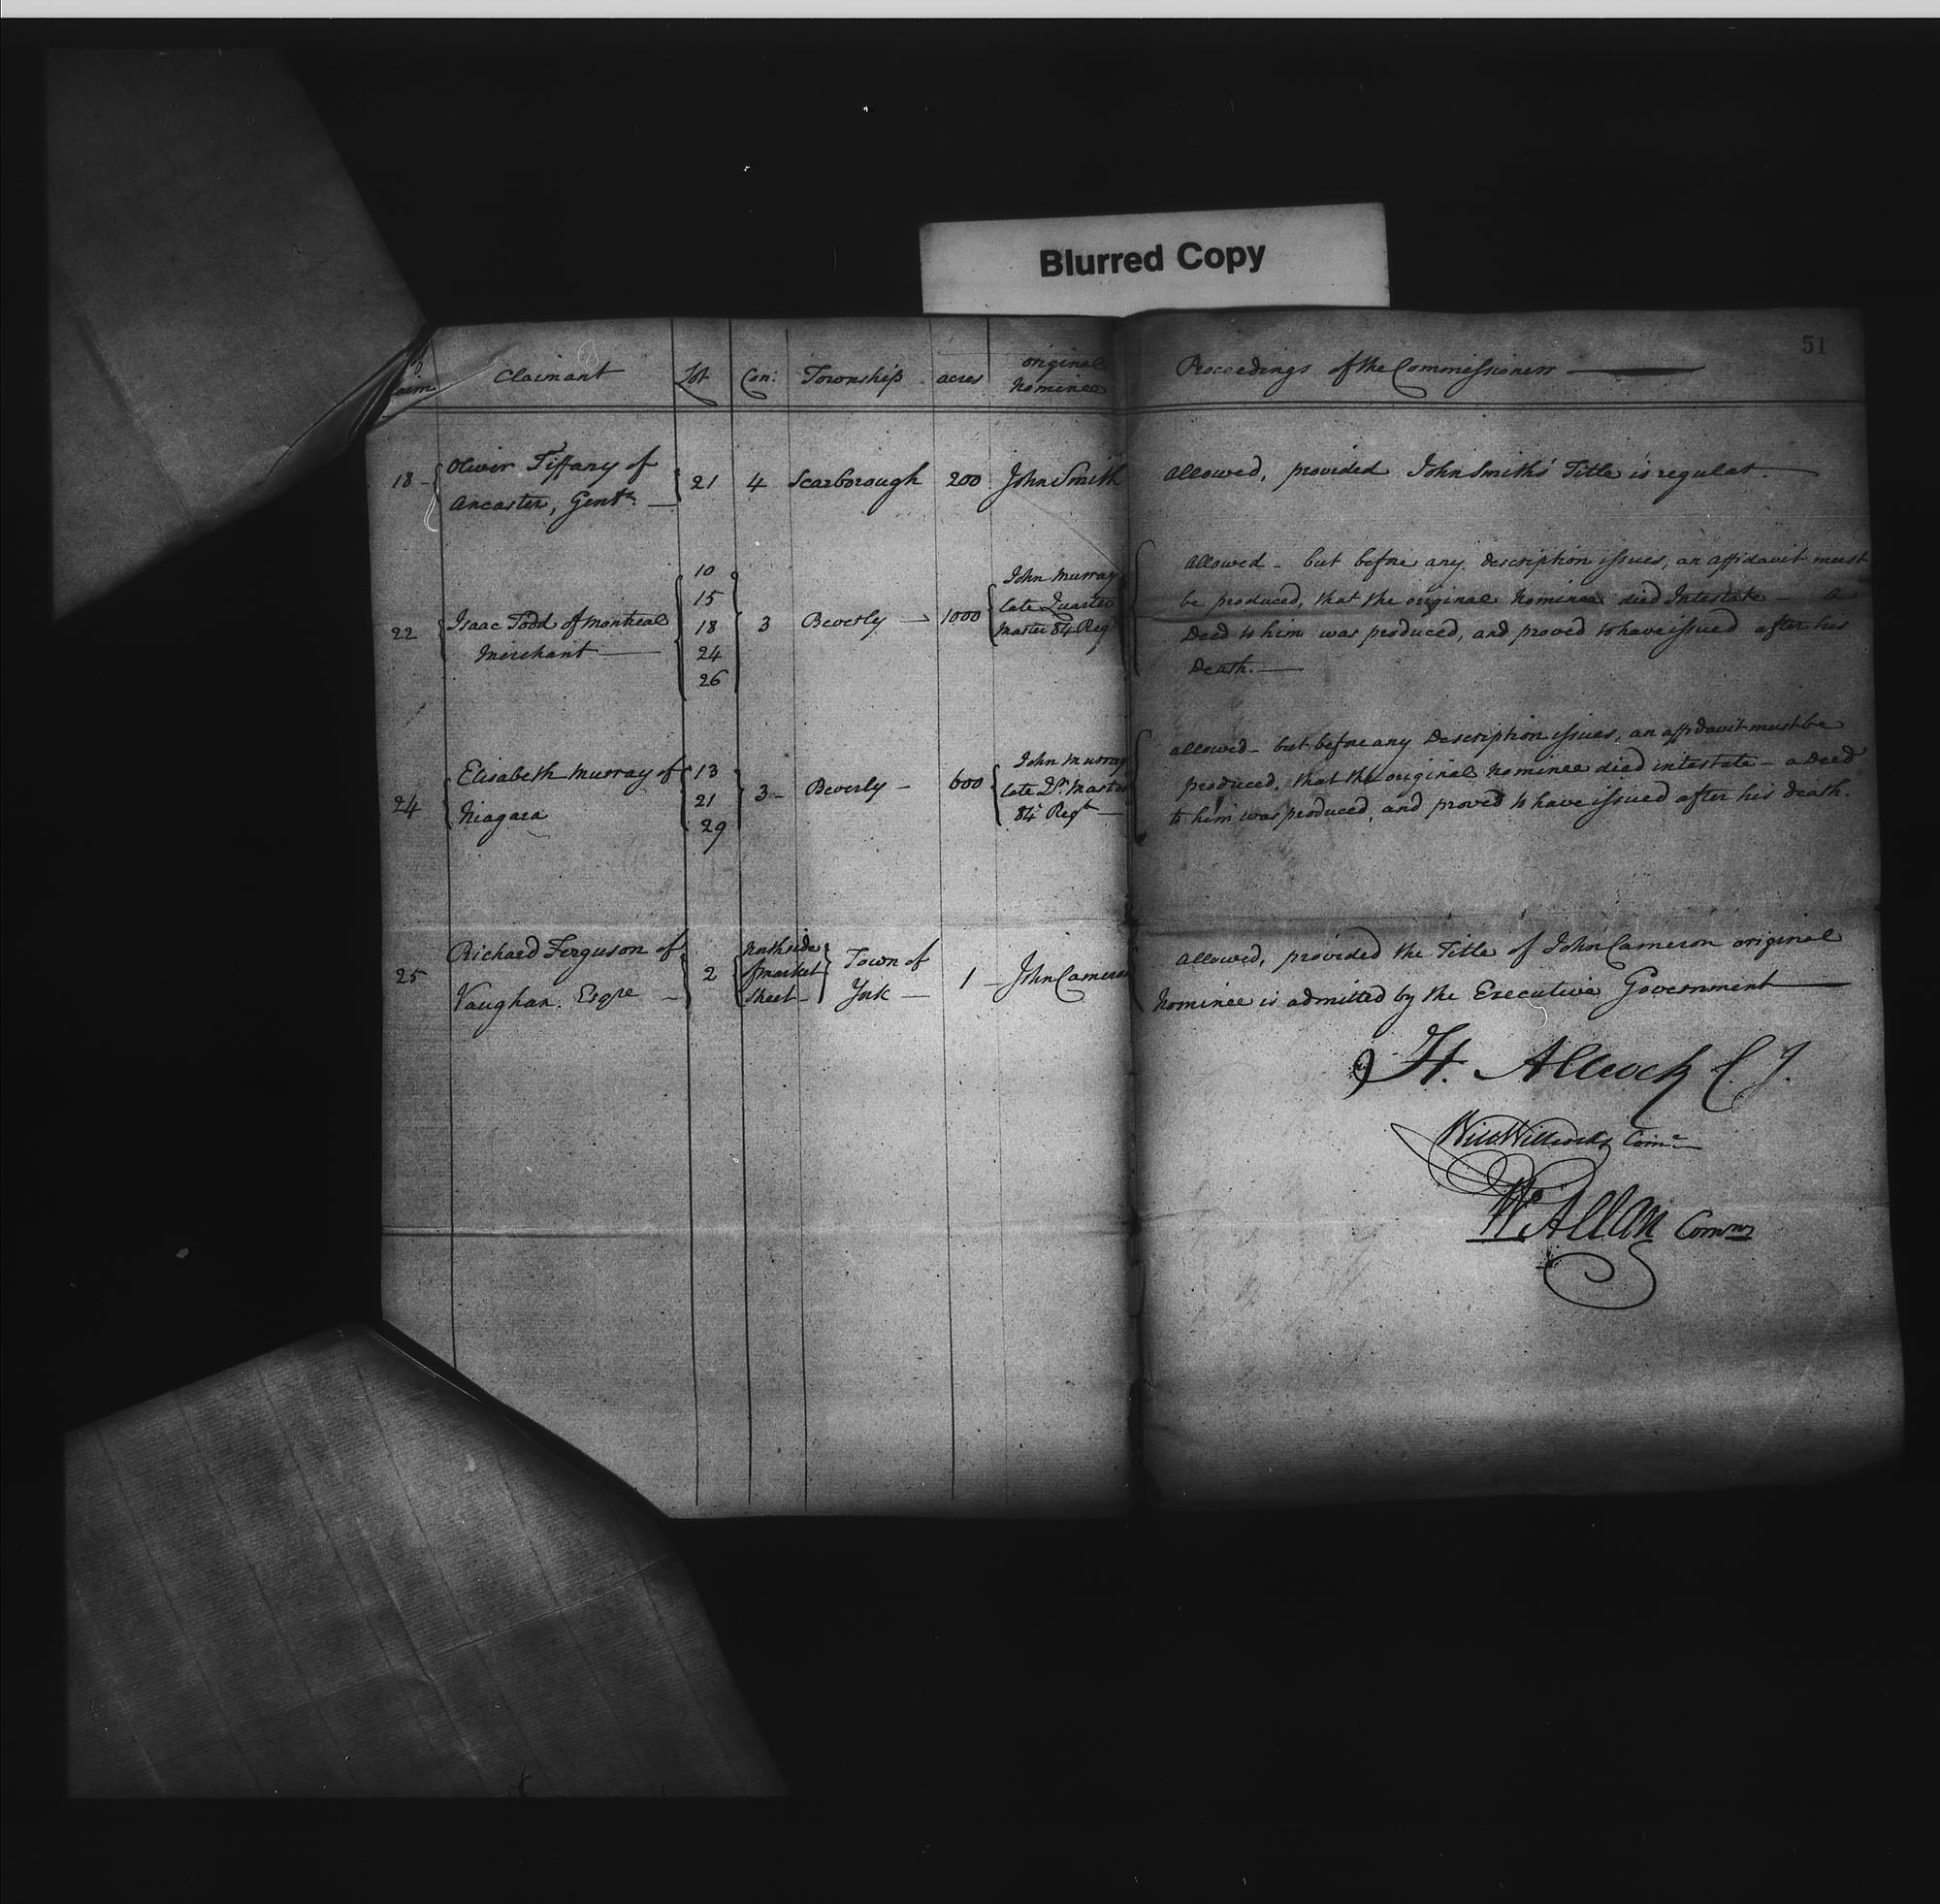 Blurred Copy
51
Claimant Lot Con: Township acres original nominee Proceedings of the Commissioners
18 Oliver Tiffany of 21 4 Scarborough 200 John Smith Allowed, provided John Smiths' Title is regular.
Ancaster, Gent.
22 Isaac Todd of Montreal
Merchant
10
15
18
24
26
3 Beverly 1000
John Murray
late Quarter
Master 84 Regt
Allowed - but before any description issues, an affidavit must
be produced, that the original Nominee died Intestate - a
Deed to him was produced, and proved to have issued after his
Death.
24 Elisabeth Murray of
Niagara
13
21
29
3 - Beverly - 600
John Murray
late Qr. Master
84 Regt
allowed - but before any Description issues, an affidavit must be
produced, that the original Nominee died intestate - a Deed
to him was produced, and proved to have issued after his death.
25 Richard Ferguson of
Vaughan. Esqre
2
North side
of market
street
Town of
York
1 - John Cameron
Allowed, provided the Title of John Cameron original
Nominee is admitted by the Executive Government
H. Allcock C. J.
Will Willcocks Comr
W. Allan Comr